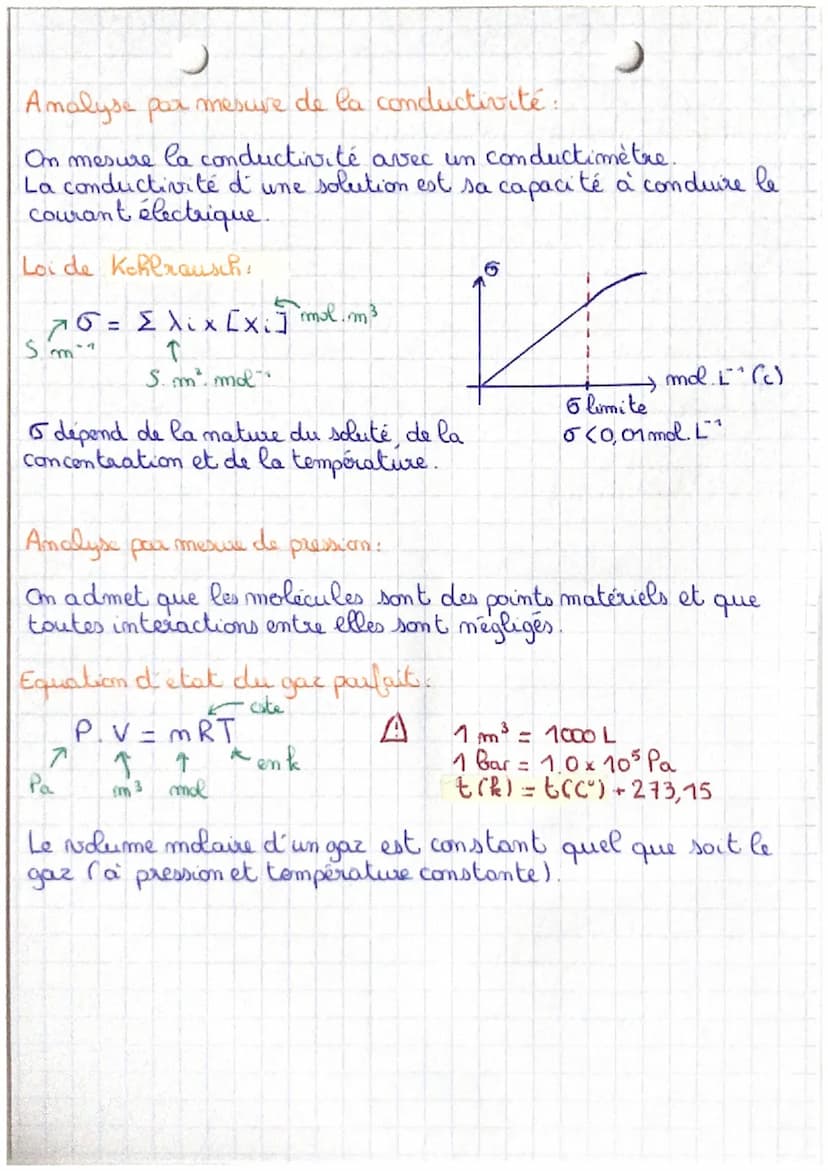 Analyse par mesure de la conductivité :
On mesure la conductivité avec un conductimètre.
La conductivité d'une solution est sa capacité à conduire le
courant électrique.
Loi de Kohlrausch :
σ = Σ λi × [Xi] mol.m³
S.m⁻¹
S.m².mol⁻¹
σ
mol.L⁻¹ (c)
σ limite
σ < 0,01 mol.L⁻¹
σ dépend de la nature du soluté, de la
concentration et de la température.
Analyse par mesure de pression :
On admet que les molécules sont des points matériels et que
toutes interactions entre elles sont négligés.
Equation d'etat du gaz parfait :
cste
P.V = nRT
en k
Pa
m³
mol
⚠ 1 m³ = 1000 L
1 Bar = 1,0 × 10⁵ Pa
t(k) = t(C°) + 273,15
Le volume molaire d'un gaz est constant quel que soit le
gaz (à pression et température constante).